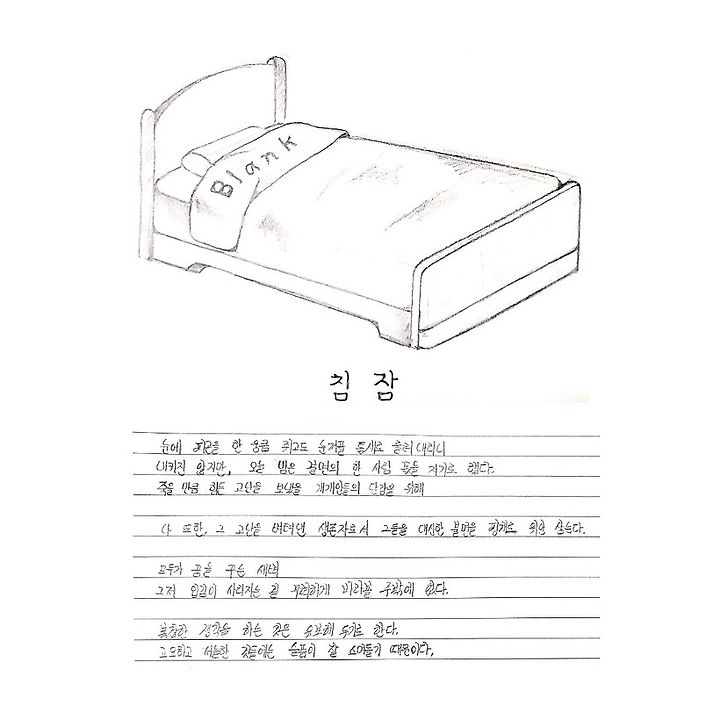 Blank
침 잠
눈에 피곤을 한 움큼 쥐고도 눈꺼풀 흘러내리니
내키진 않지만, 오늘 밤은 불면의 한 사람 몫을 지기로 했다.
죽을 만큼 힘든 고난을 보냈을 개개인들의 단잠을 위해
나 또한, 그 고난을 버텨낸 생존자로서 그들을 대신한 불면을 핑계로 위안 삼는다.
모두가 꿈을 꾸는 새벽
그저 입김이 사라지는 걸 무력하게 바라볼 수밖에 없다.
복잡한 생각을 하는 것은 유보해 두기로 한다.
고요하고 서늘한 것들에는 슬픔이 잘 스며들기 때문이다.